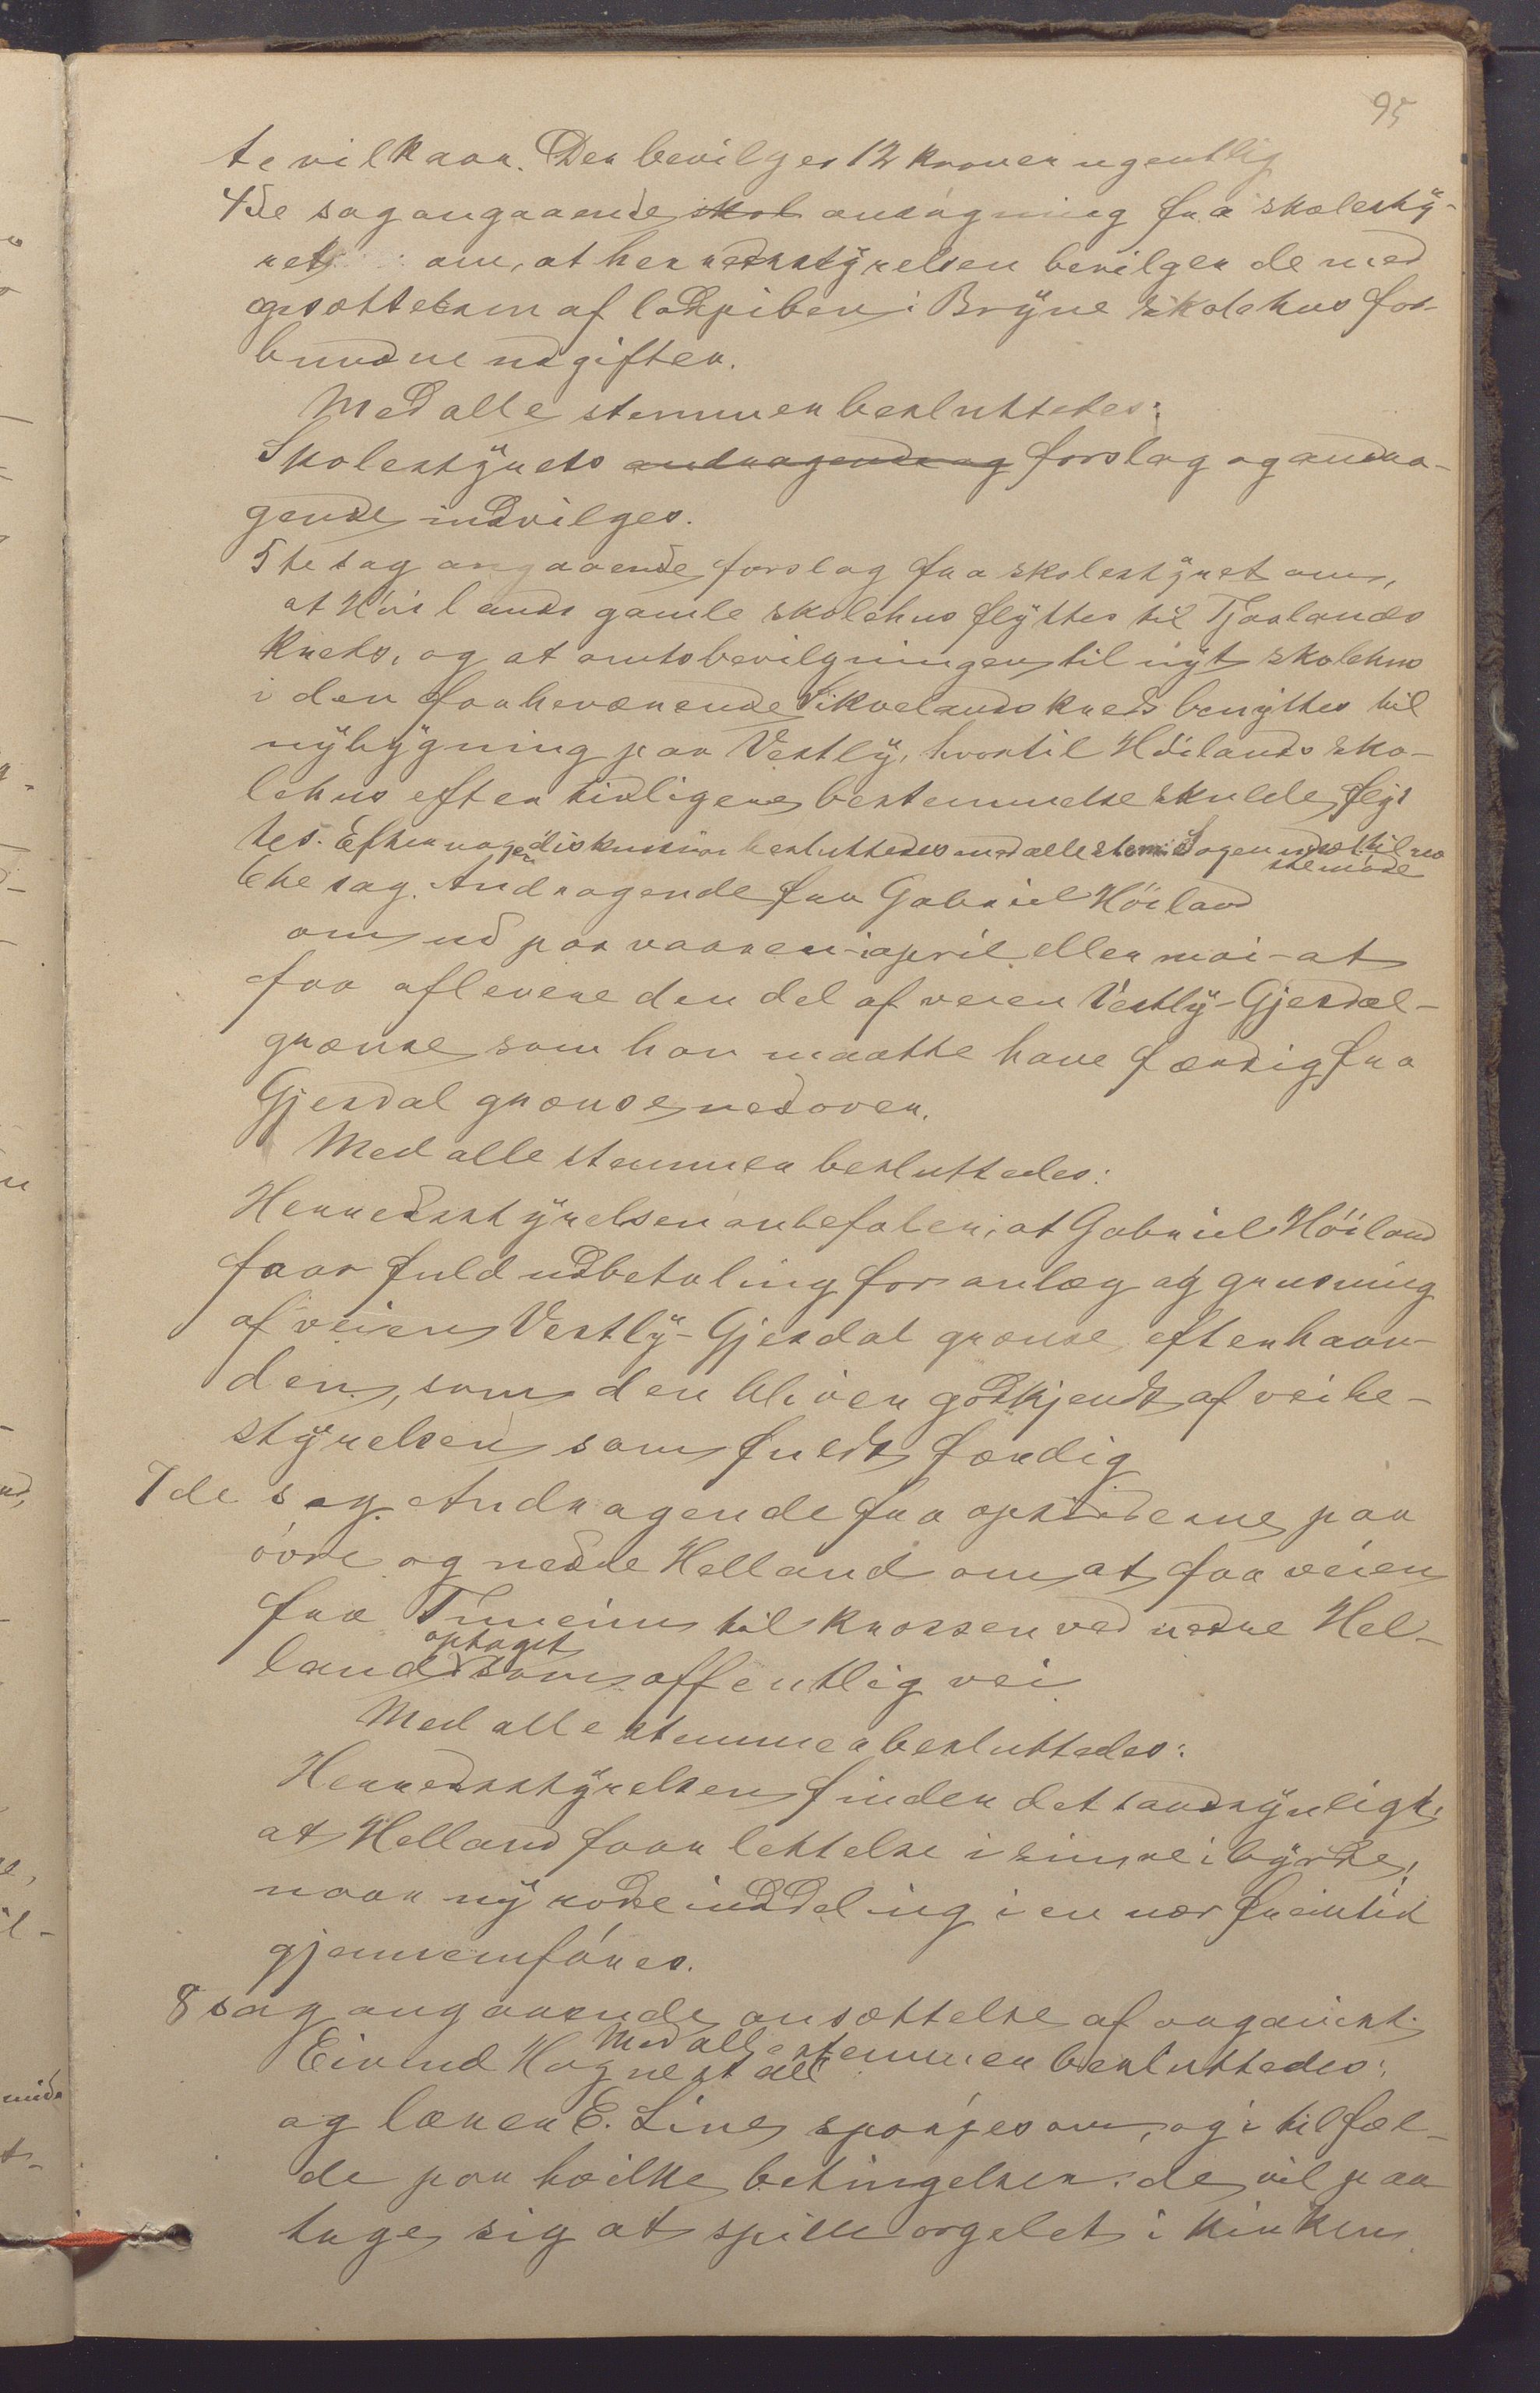 95
te vilkaar. Der bevilges 12 kroner ugentlig
4de sag angaaende skol ansøgning fra skolesty-
ret om, at herredsstyrelsen bevilger de med
opsættelsen af lodpiben i Bryne skolehus for-
bundne udgifter.
Med alle stemmer besluttedes:
Skolestyrets andragende og forslag og andra-
gende indvilges.
5te sag angaaende forslag fra skolestyret om,
at Höilands gamle skolehus flyttes til Tjaalands
kreds, og at amtsbevilgningen til nyt skolehus
i den forhenværende Sikvelands kreds benyttes til
nybygning paa Vestly, hvortil Höilands sko-
lehus efter tidligere bestemmelse skulde flyt
tes. Efter nogen diskussion besluttedes med alle stem: Sagen udsat til næ
ste møde
6te sag. Andragende fra Gabriel Höiland
om ud paa vaaren - i april eller mai - at
faa aflevere den del af veien Vestly-Gjesdal-
grænse som han maatte have færdig fra
Gjesdal grænse nedover.
Med alle stemmer besluttedes:
Herredsstyrelsen anbefaler, at Gabriel Höiland
faar fuld udbetaling for anlæg og grusning
af veien Vestly-Gjesdal grænse efterhaan-
den, som den bliver godkjendt af veibe-
styrelsen som fuldt færdig
7de sag. Andragende fra opsidderne paa
övre og nedre Helland om at faa veien
fra Timeim til krossen ved nedre Hel-
land optaget som offentlig vei
Med alle stemmer besluttedes:
Herredsstyrelsen finder det sandsynligt,
at Helland faar lettelse i sin veibyrde,
naar ny rodeinddeling i en nær fremtid
gjennemföres.
8 sag angaaende ansættelse af organist.
Med alle stemmer besluttedes:
Eivind Hognestad
og lærer E. Line spørjes om, og i tilfæl-
de paa hvilke betingelser de vil paa
tage sig at spille orgelet i kirken